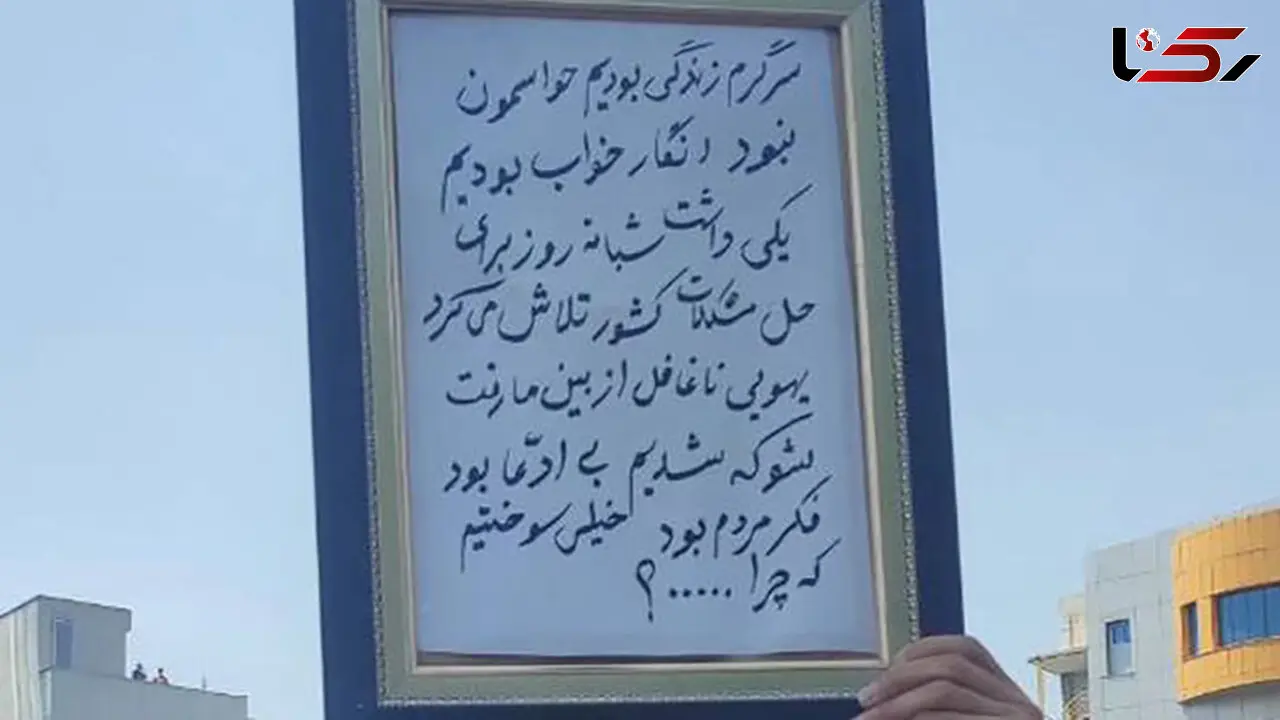 رکنا
سرگرم زندگی بودیم حواسمون
نبود انگار خواب بودیم
یکی داشت شبانه روز برای
حل مشکلات کشور تلاش می کرد
یهویی ناغافل از بین ما رفت
شوکه شدیم بی ادّعا بود
فکر مردم بود خیلی سوختیم
که چرا .....؟